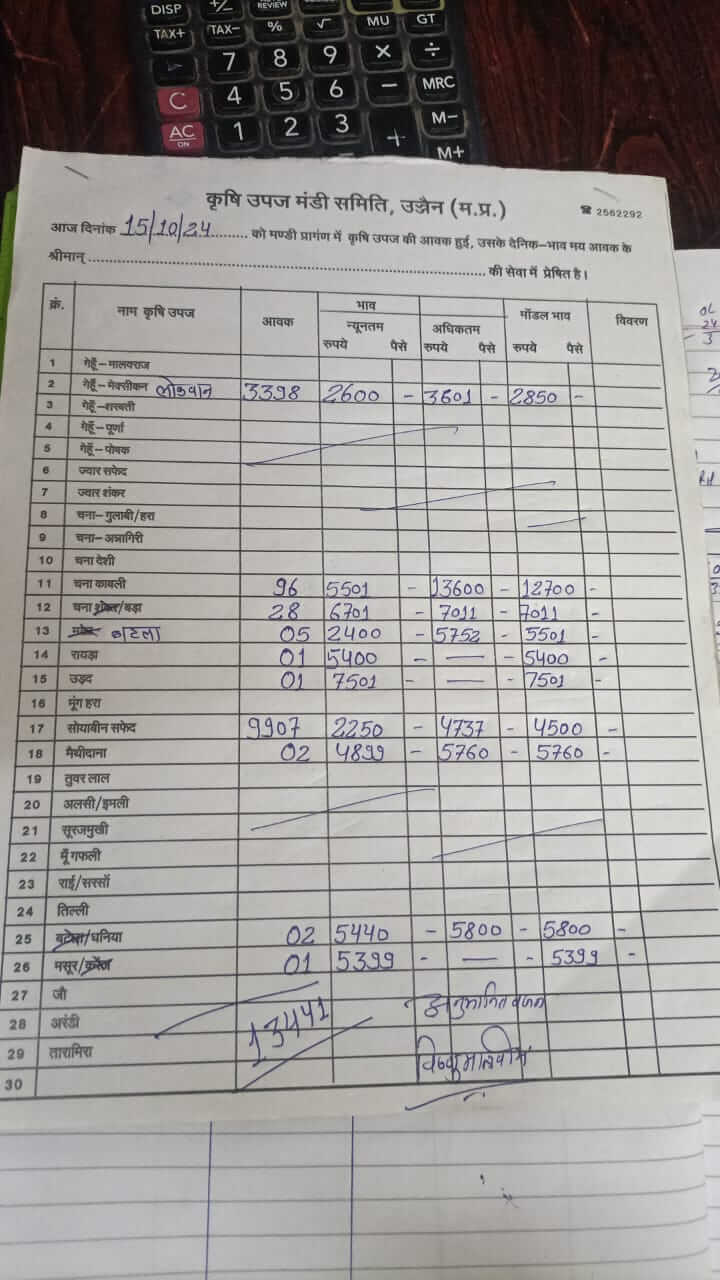 DISP +/- REVIEW MU GT
TAX+ TAX- % √ × ÷
7 8 9
C 4 5 6 - MRC
AC ON 1 2 3 + M-
M+
कृषि उपज मंडी समिति, उज्जैन (म.प्र.) ☎ 2562292
आज दिनांक 15/10/24 ......... को मण्डी प्रागंण में कृषि उपज की आवक हुई, उसके दैनिक-भाव मय आवक के
श्रीमान् ........................ की सेवा में प्रेषित है।
क्रं. नाम कृषि उपज आवक भाव मॉडल भाव विवरण
न्यूनतम अधिकतम
रुपये पैसे रुपये पैसे रुपये पैसे
1 गेहूँ-मालवराज
2 गेहूँ-मेक्सीकन लोकवान 3398 2600 - 3601 - 2850 -
3 गेहूँ-शरबती
4 गेहूँ-पूर्णा
5 गेहूँ-पोषक
6 ज्वार सफेद
7 ज्वार शंकर
8 चना-गुलाबी/हरा
9 चना-अन्नागिरी
10 चना देशी
11 चना काबली 96 5501 - 13600 - 12700 -
12 चना /बड़ा 28 6701 - 7011 - 7011 -
13 बटला 05 2400 - 5752 - 5501 -
14 रायड़ा 01 5400 - — - 5400 -
15 उड़द 01 7501 - — - 7501 -
16 मूंग हरा
17 सोयाबीन सफेद 9907 2250 - 4737 - 4500 -
18 मैथीदाना 02 4899 - 5760 - 5760 -
19 तुवर लाल
20 अलसी/इमली
21 सूरजमुखी
22 मूँगफली
23 राई/सरसों
24 तिल्ली
25 बटला/धनिया 02 5440 - 5800 - 5800 -
26 मसूर/ 01 5399 - — - 5399 -
27 जौ
28 अरंडी 13441 अनुमानित वजन
29 तारामिरा
30